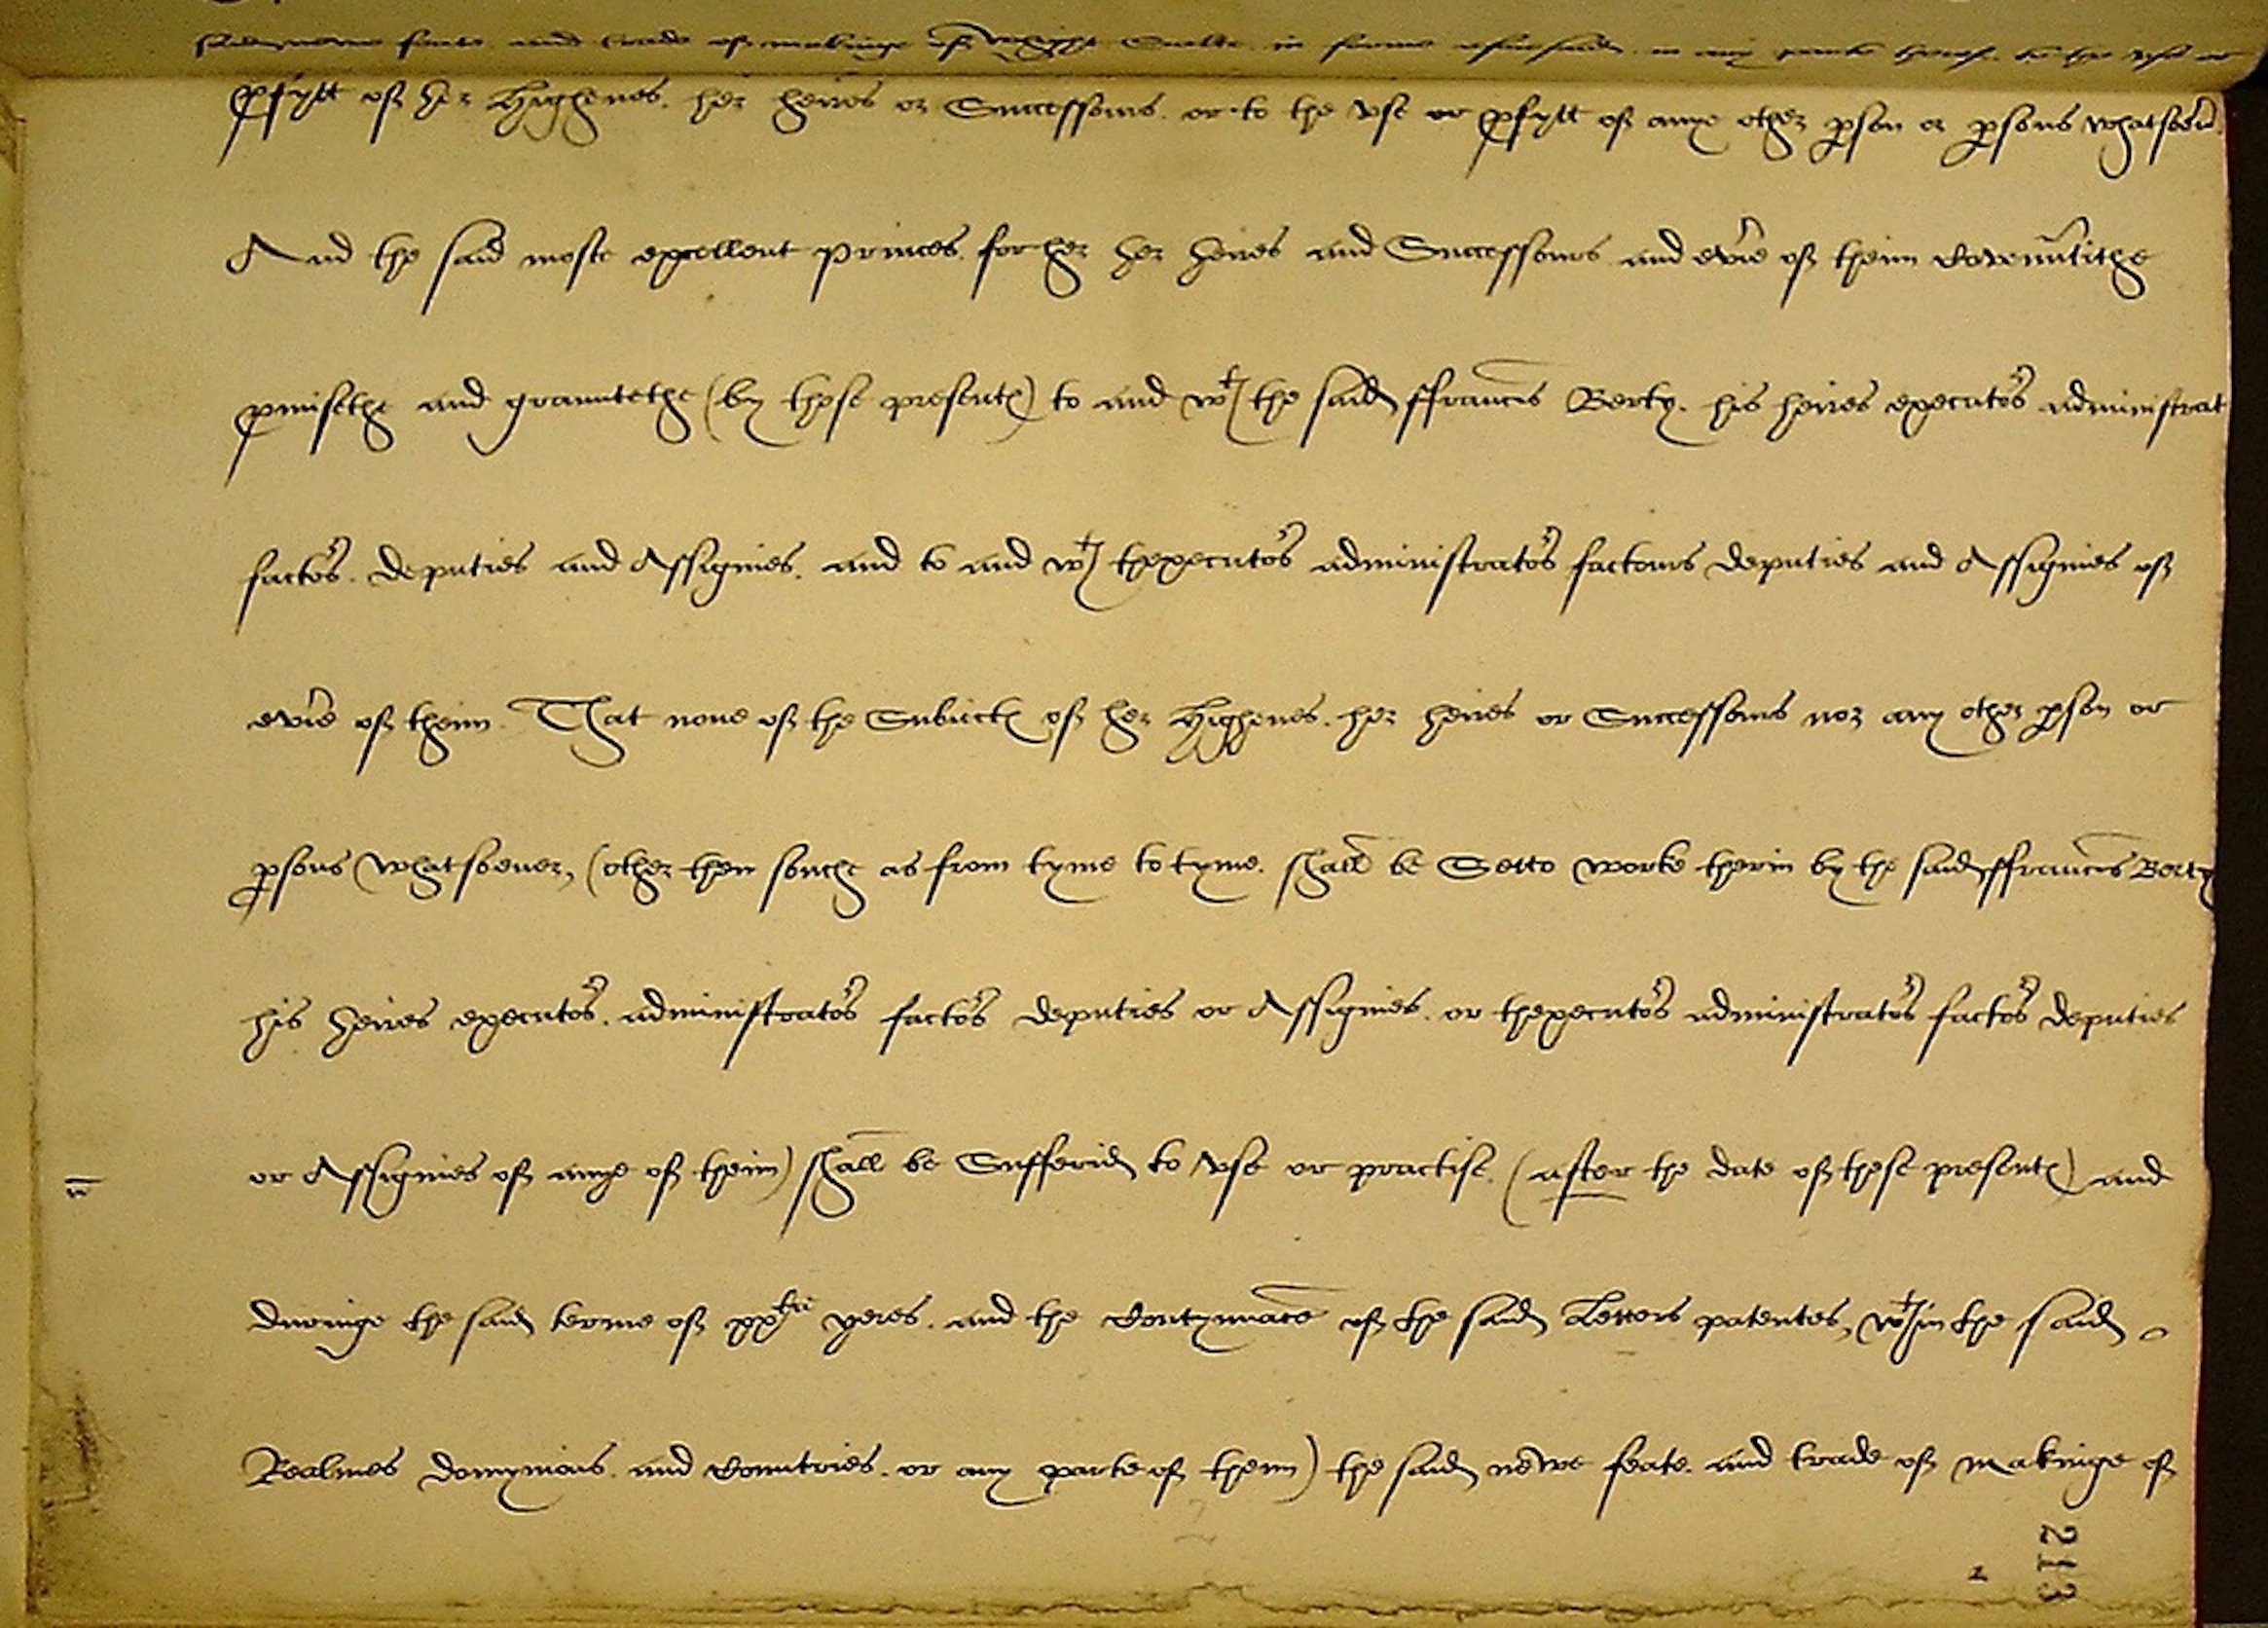 saide newe feate and trade of makinge of Whighte Saulte in forme aforsaide in any parte therof to the vse or
pfytt of her Highenes. her heires or Successours. or to the vse or pfytt of anye other pson or psons whatsoeũ.
And the said moste excellent princes for her her heires and Successours and eũie of theim Covenũtithe
pmisethe and grauntethe (by these presentę) to and wt the saide ffrauncis Berty. his heires executors administrat
factors. deputies and Assignies. and to and wt thexecutors administrators factours deputies and Assignies of
eũie of theim. That none of the Subiectę of her Highenes. her heires or Successours nor any other pson or
psons whatsoeuer, (other then souche as from tyme to tyme. shall be Setto worke therin by the saide ffrauncis Berty
his heires executors. administrators factors deputies or Assignies. or thexecutors administrators factors deputies
or Assignies of anye of theim) shall be Sufferid to vse or practise. (after the date of these presentę) and
duringe the saide terme of xxtie yeres. and the Contynuãce of the saide Letters patentes, wtin the saide
Realmes domynions. and Countries. or any parte of them) the saide newe feate. and trade of makinge of
213